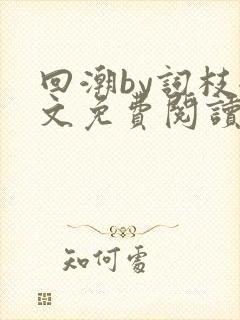 回潮by詞枝
文免費閱讀
知何處